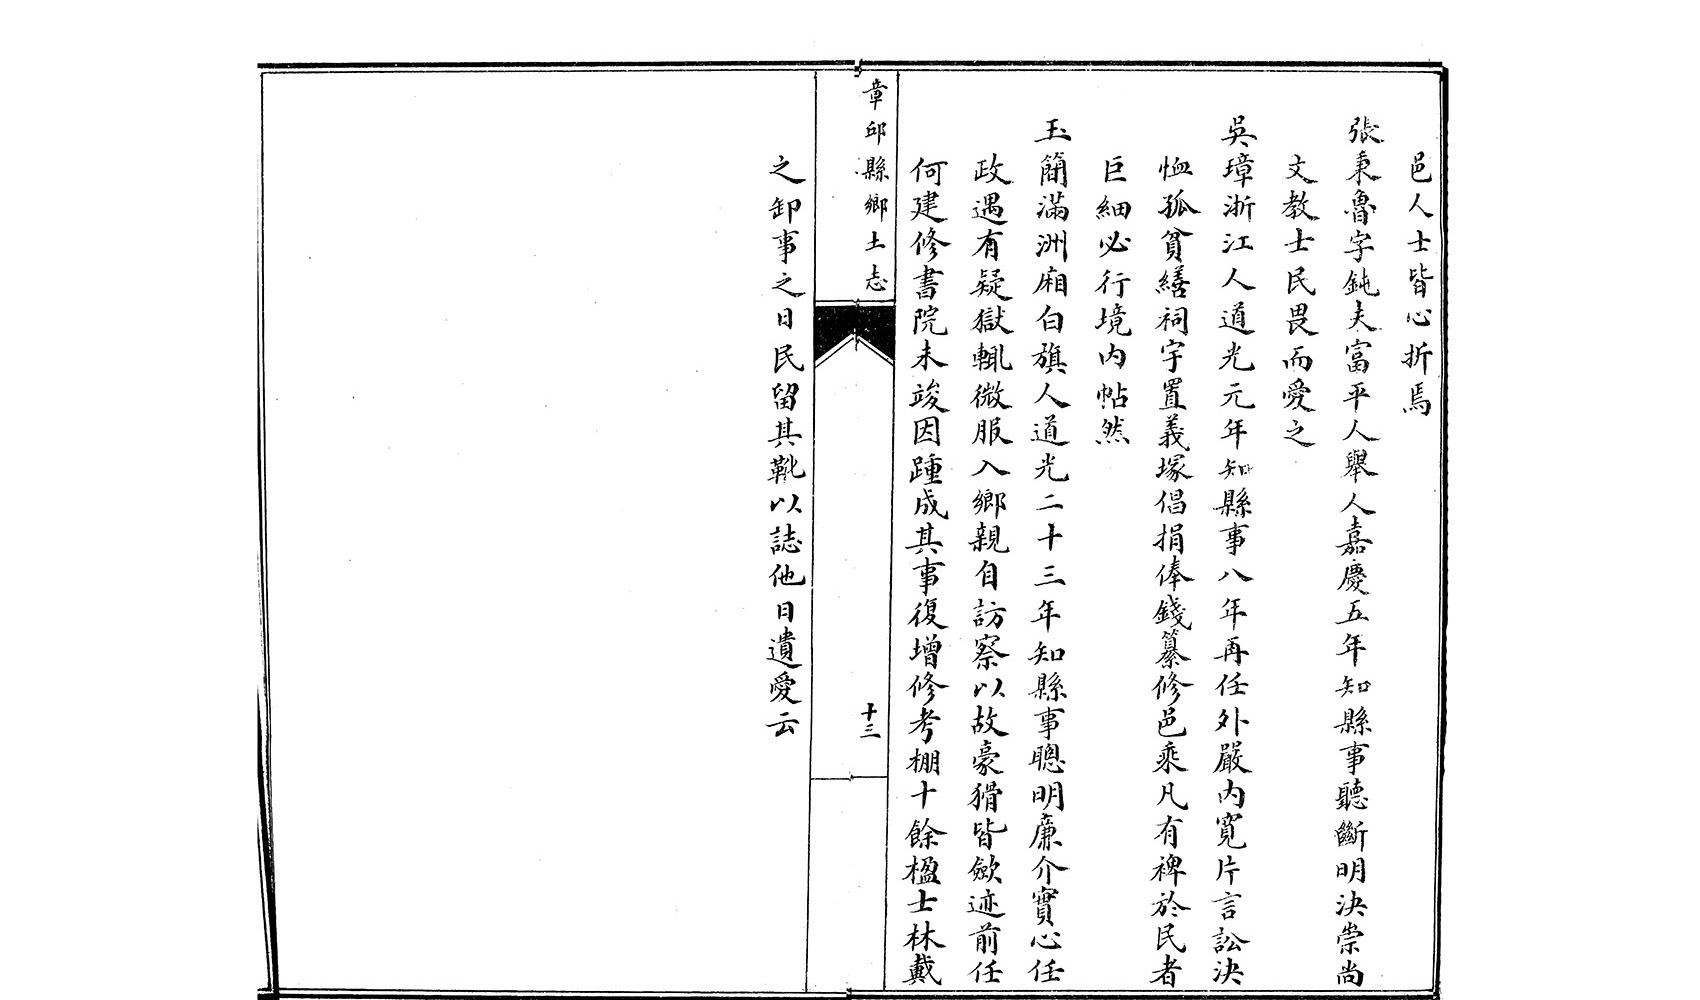 邑人士皆心折焉
張秉魯字鈍夫富平人舉人嘉慶五年知縣事聽斷明決崇尚
文教士民畏而愛之
吳璋浙江人道光元年知縣事八年再任外嚴內寬片言訟決
恤孤貧繕祠宇置義塚倡捐俸錢纂修邑乘凡有裨於民者
巨細必行境內帖然
玉簡滿洲廂白旗人道光二十三年知縣事聰明廉介實心任
政遇有疑獄輒微服入鄉親自訪察以故豪猾皆歛迹前任
何建修書院未竣因踵成其事復增修考棚十餘楹士林戴
章邱縣鄉土志
十三
之卸事之日民留其靴以誌他日遺愛云